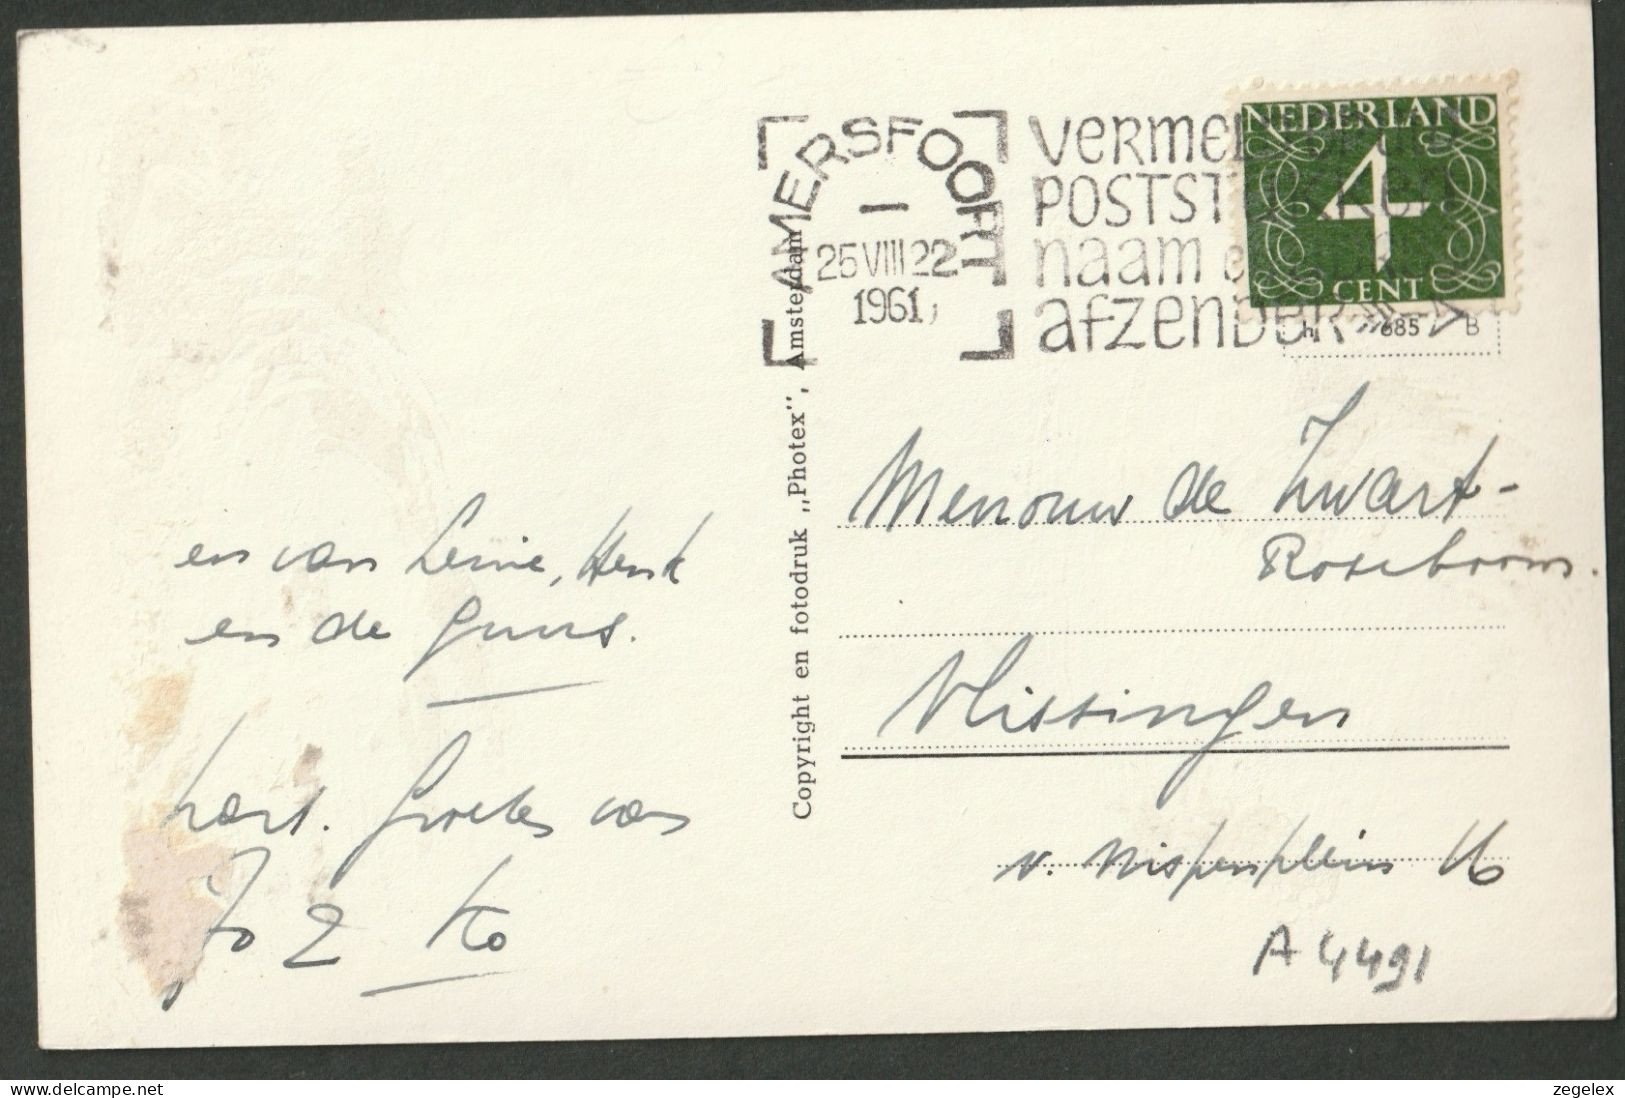 AMERSFOORT
25 VIII 22
1961
VERMELD
POSTST
naam e
afzender
NEDERLAND
4
CENT
h 685 B
Copyright en fotodruk „Photex”, Amsterdam
en van Lenie, Henk
en de Guus.
hart. Groeten van
Jo & Ko
Mevrouw de Zwart-
Rozeboom.
Vlissingen
v. Nispenplein 16
A4491
delcampe.net
zegelex